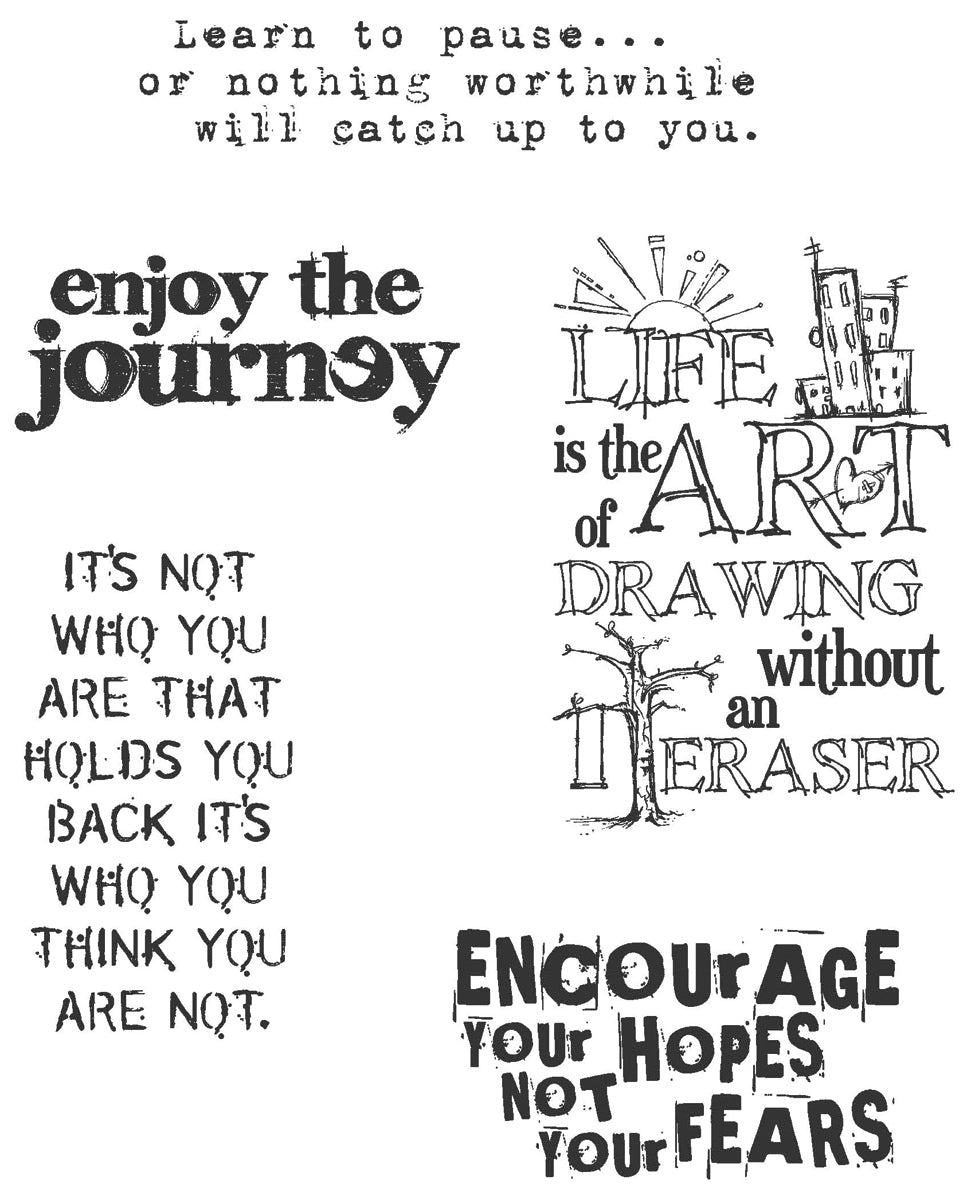 Learn to pause...
or nothing worthwhile
will catch up to you.
enjoy the
journey
LIFE
is the ART
of
DRAWING
without
an
ERASER
IT'S NOT
WHO YOU
ARE THAT
HOLDS YOU
BACK IT'S
WHO YOU
THINK YOU
ARE NOT.
ENCOUrAGE
YOUr HOPES
NOT
YOUr FEARS